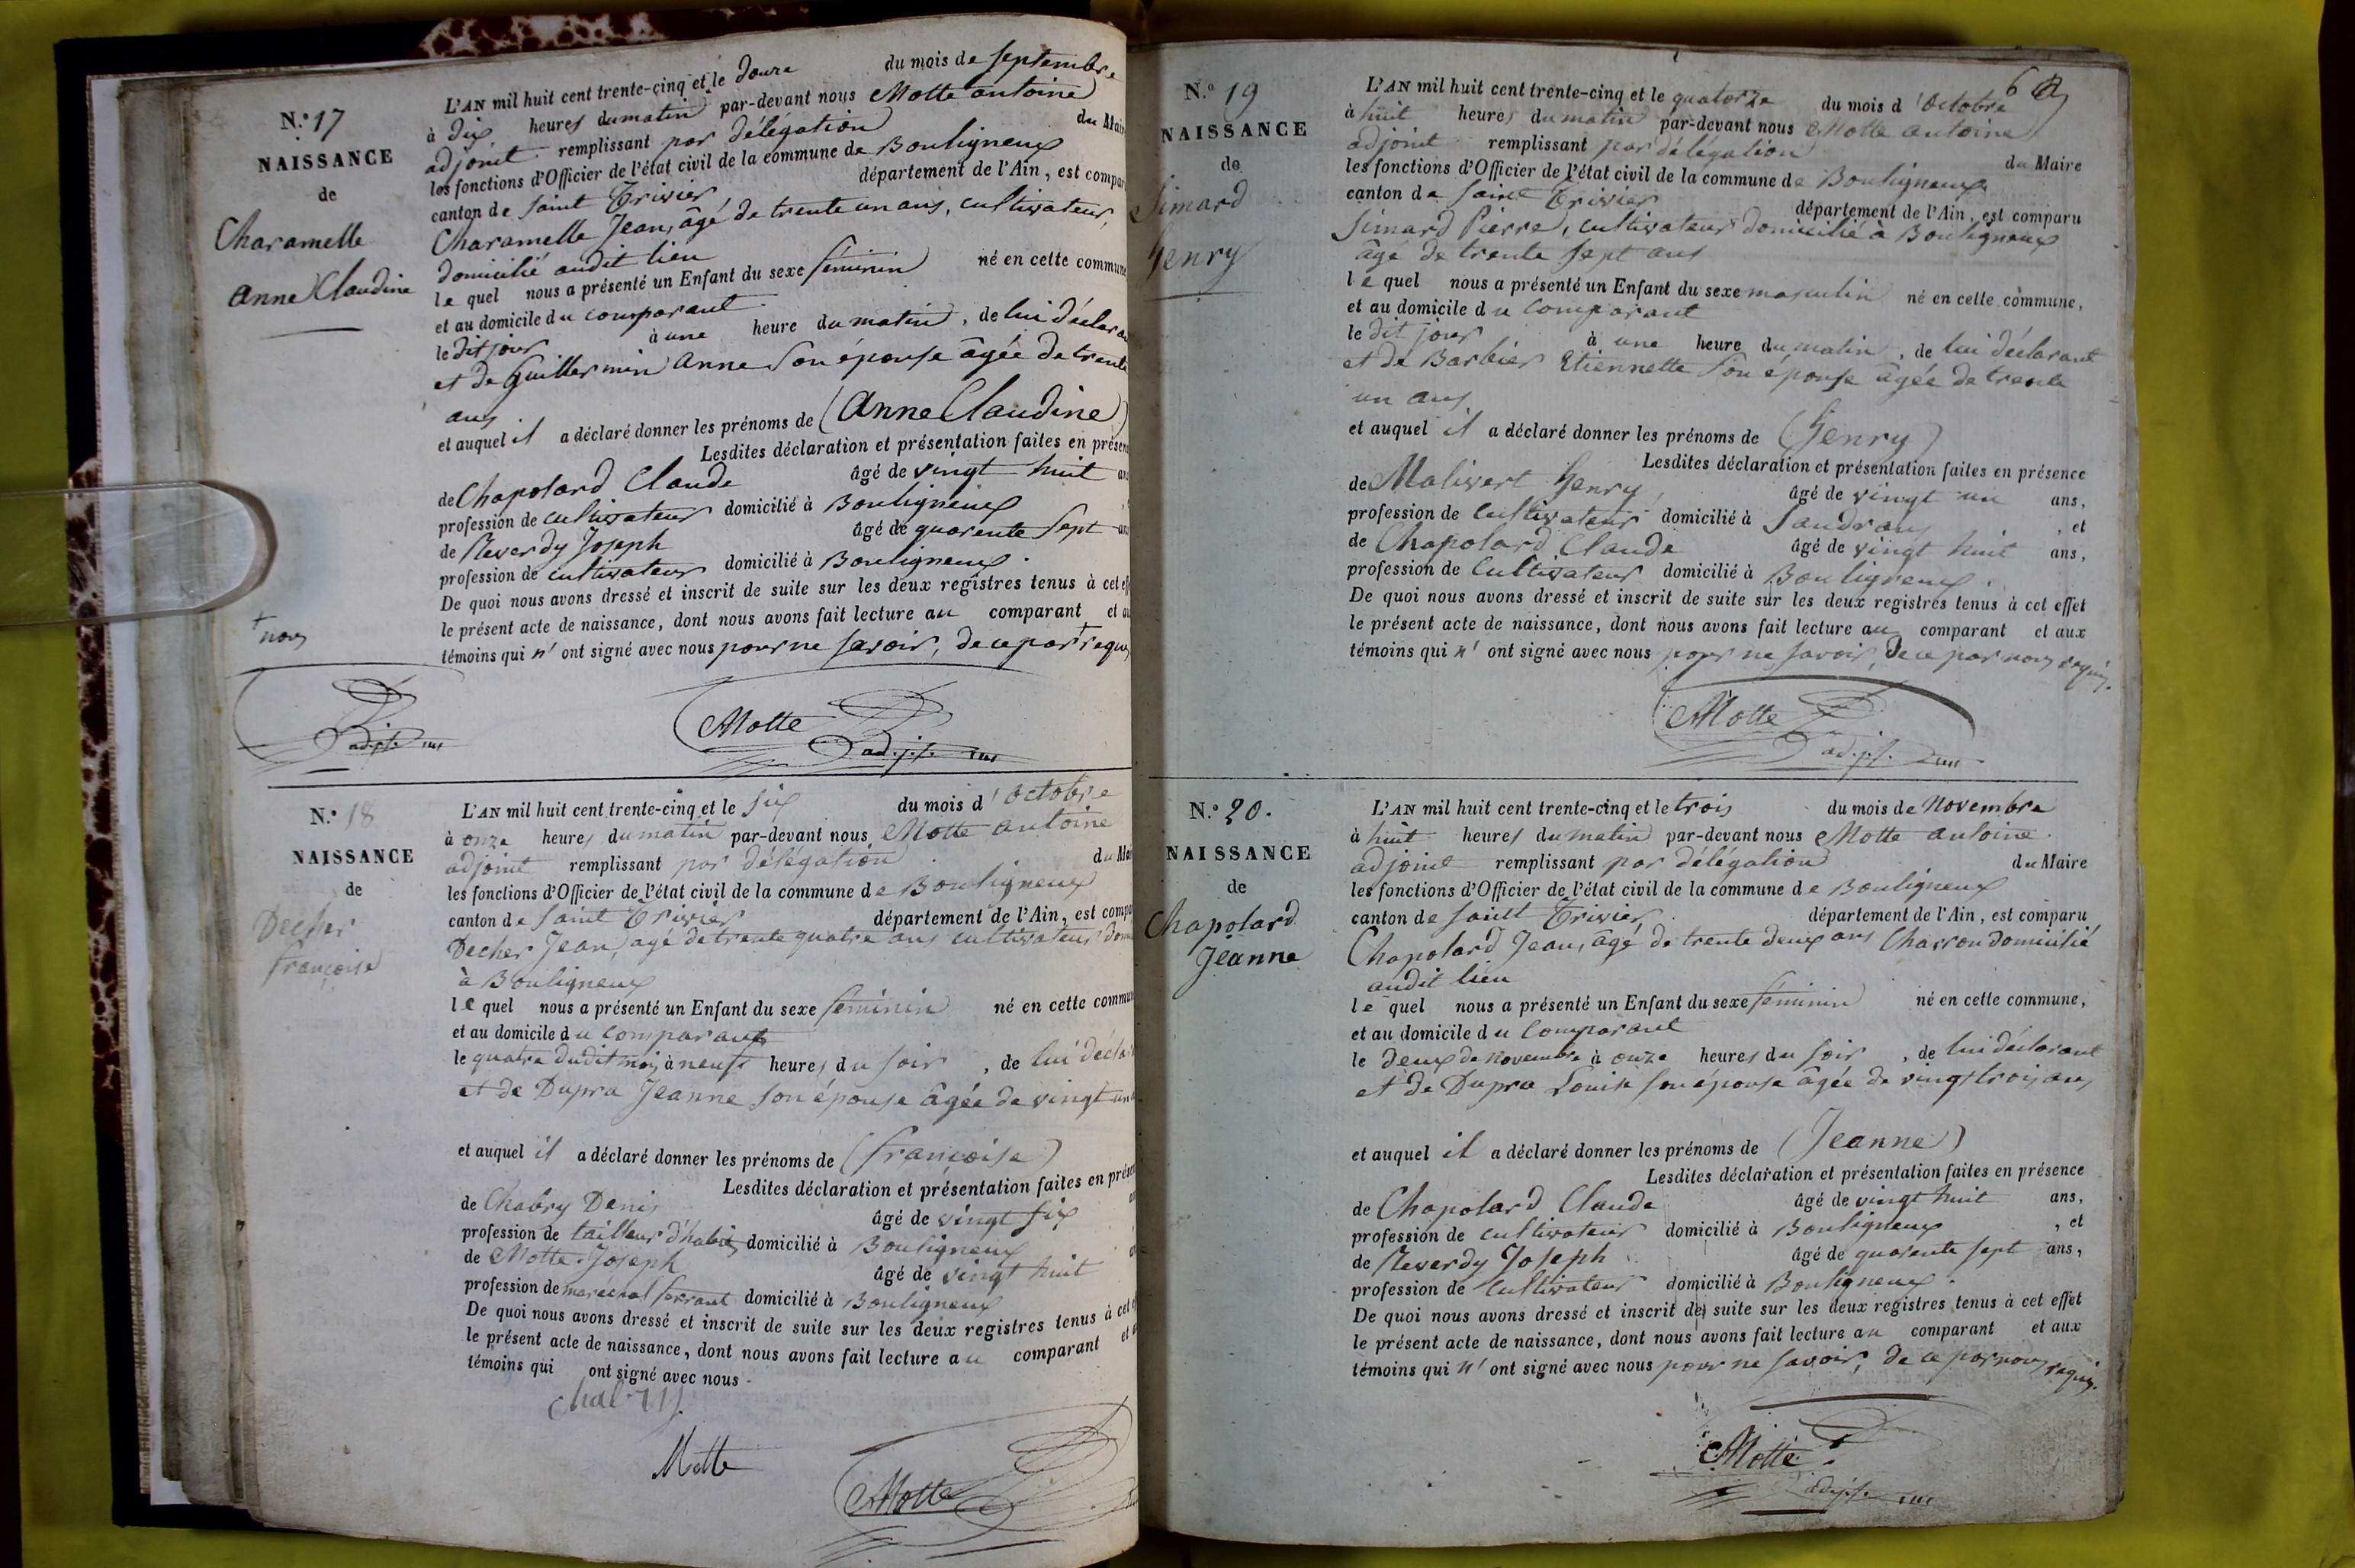 N.° 17
NAISSANCE
de
Charamelle
Anne Claudine
L'AN mil huit cent trente-cinq et le douze du mois de septembre
à dix heures du matin par-devant nous Motte antoine
adjoint remplissant par délégation du Mair
les fonctions d'Officier de l'état civil de la commune de Bouligneux
canton de saint Trivier département de l'Ain, est compar
Charamelle Jean, âgé de trente un ans, cultivateur,
domicilié audit lieu
le quel nous a présenté un Enfant du sexe féminin né en cette commune
et au domicile du comparant
le dit jour à une heure du matin, de lui déclaran
et de Guillermin Anne son épouse âgée de trente
ans
et auquel il a déclaré donner les prénoms de (Anne Claudine)
Lesdites déclaration et présentation faites en présen
de Chapolard Claude âgé de vingt huit an
profession de cultivateur domicilié à Bouligneux
de Reverdy Joseph âgé de quarente sept an
profession de cultivateur domicilié à Bouligneux.
De quoi nous avons dressé et inscrit de suite sur les deux registres tenus à cet eff
le présent acte de naissance, dont nous avons fait lecture au comparant et au
témoins qui n'ont signé avec nous pour ne savoir, de ce par + requis
+ nous
adjt
Motte
adjt
N.° 18
NAISSANCE
de
Decher
françoise
L'AN mil huit cent trente-cinq et le six du mois d'octobre
à onze heures du matin par-devant nous Motte antoine
adjoint remplissant par délégation du Mai
les fonctions d'Officier de l'état civil de la commune de Bouligneux
canton de saint Trivier département de l'Ain, est compa
Decher Jean, agé de trente quatre ans cultivateur dom
à Bouligneux
le quel nous a présenté un Enfant du sexe féminin né en cette commun
et au domicile du comparant
le quatre dudit mois à neuf heures du soir, de lui déclar
et de Dupra Jeanne son épouse âgée de vingt un
et auquel il a déclaré donner les prénoms de (françoise)
Lesdites déclaration et présentation faites en présen
de Chabry Denis âgé de vingt six an
profession de tailleur d'habits domicilié à Bouligneux
de Motte Joseph âgé de vingt huit an
profession de maréchal ferrant domicilié à Bouligneux
De quoi nous avons dressé et inscrit de suite sur les deux registres tenus à cet
le présent acte de naissance, dont nous avons fait lecture au comparant et a
témoins qui ont signé avec nous
Motte
Motte
6
N.° 19
NAISSANCE
de
Simard
henry
L'AN mil huit cent trente-cinq et le quatorze du mois d'octobre
à huit heures du matin par-devant nous Motte antoine
adjoint remplissant par délégation du Maire
les fonctions d'Officier de l'état civil de la commune de Bouligneux
canton de saint Trivier département de l'Ain, est comparu
Simard Pierre, cultivateur domicilié à Bouligneux
âgé de trente sept ans
le quel nous a présenté un Enfant du sexe masculin né en cette commune,
et au domicile du comparant
le dit jour à une heure du matin, de lui déclarant
et de Barbier Etiennette son épouse âgée de trente
un ans
et auquel il a déclaré donner les prénoms de (henry)
Lesdites déclaration et présentation faites en présence
de Malivert henry âgé de vingt un ans,
profession de cultivateur domicilié à Sandrans, et
de Chapolard Claude âgé de vingt huit ans,
profession de cultivateur domicilié à Bouligneux.
De quoi nous avons dressé et inscrit de suite sur les deux registres tenus à cet effet
le présent acte de naissance, dont nous avons fait lecture au comparant et aux
témoins qui n'ont signé avec nous pour ne savoir, de ce par nous requis.
Motte
adjt
N.° 20.
NAISSANCE
de
Chapolard
Jeanne
L'AN mil huit cent trente-cinq et le trois du mois de Novembre
à huit heures du matin par-devant nous Motte antoine.
adjoint remplissant par délégation du Maire
les fonctions d'Officier de l'état civil de la commune de Bouligneux
canton de saint Trivier département de l'Ain, est comparu
Chapolard Jean, âgé de trente deux ans Charron domicilié
audit lieu
le quel nous a présenté un Enfant du sexe féminin né en cette commune,
et au domicile du comparant
le deux de novembre à onze heures du soir, de lui déclarant
et de Dupra Louise son épouse âgée de vingt trois ans
et auquel il a déclaré donner les prénoms de (Jeanne)
Lesdites déclaration et présentation faites en présence
de Chapolard Claude âgé de vingt huit ans,
profession de cultivateur domicilié à Bouligneux, et
de Reverdy Joseph âgé de quarente sept ans,
profession de cultivateur domicilié à Bouligneux.
De quoi nous avons dressé et inscrit de suite sur les deux registres tenus à cet effet
le présent acte de naissance, dont nous avons fait lecture au comparant et aux
témoins qui n'ont signé avec nous pour ne savoir, de ce par nous requis.
Motte
adjt